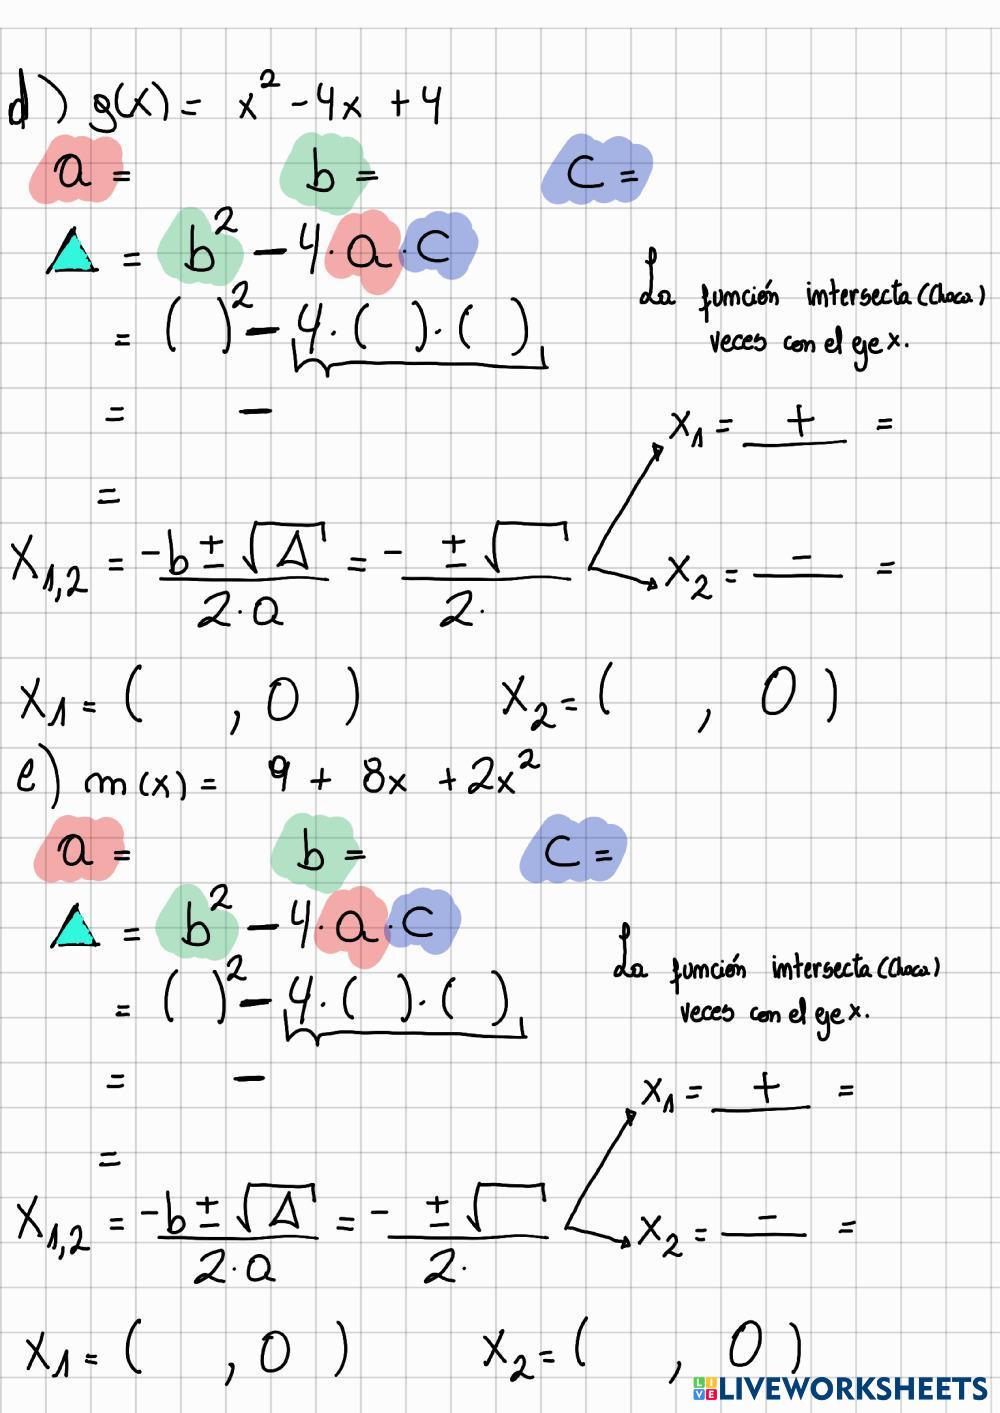 d) g(x) = x² - 4x + 4
a = b = c =
△ = b² - 4·a·c
= ( )² - 4·( )·( )
La función intersecta (choca)
veces con el eje x.
= -
x₁ = + =
=
x₁,₂ = -b ± √Δ / 2·a = - ± √ / 2·
x₂ = - =
x₁ = ( , 0 ) x₂ = ( , 0 )
e) m(x) = 9 + 8x + 2x²
a = b = c =
△ = b² - 4·a·c
= ( )² - 4·( )·( )
La función intersecta (choca)
veces con el eje x.
= -
x₁ = + =
=
x₁,₂ = -b ± √Δ / 2·a = - ± √ / 2·
x₂ = - =
x₁ = ( , 0 ) x₂ = ( , 0 )
LIVE LIVEWORKSHEETS